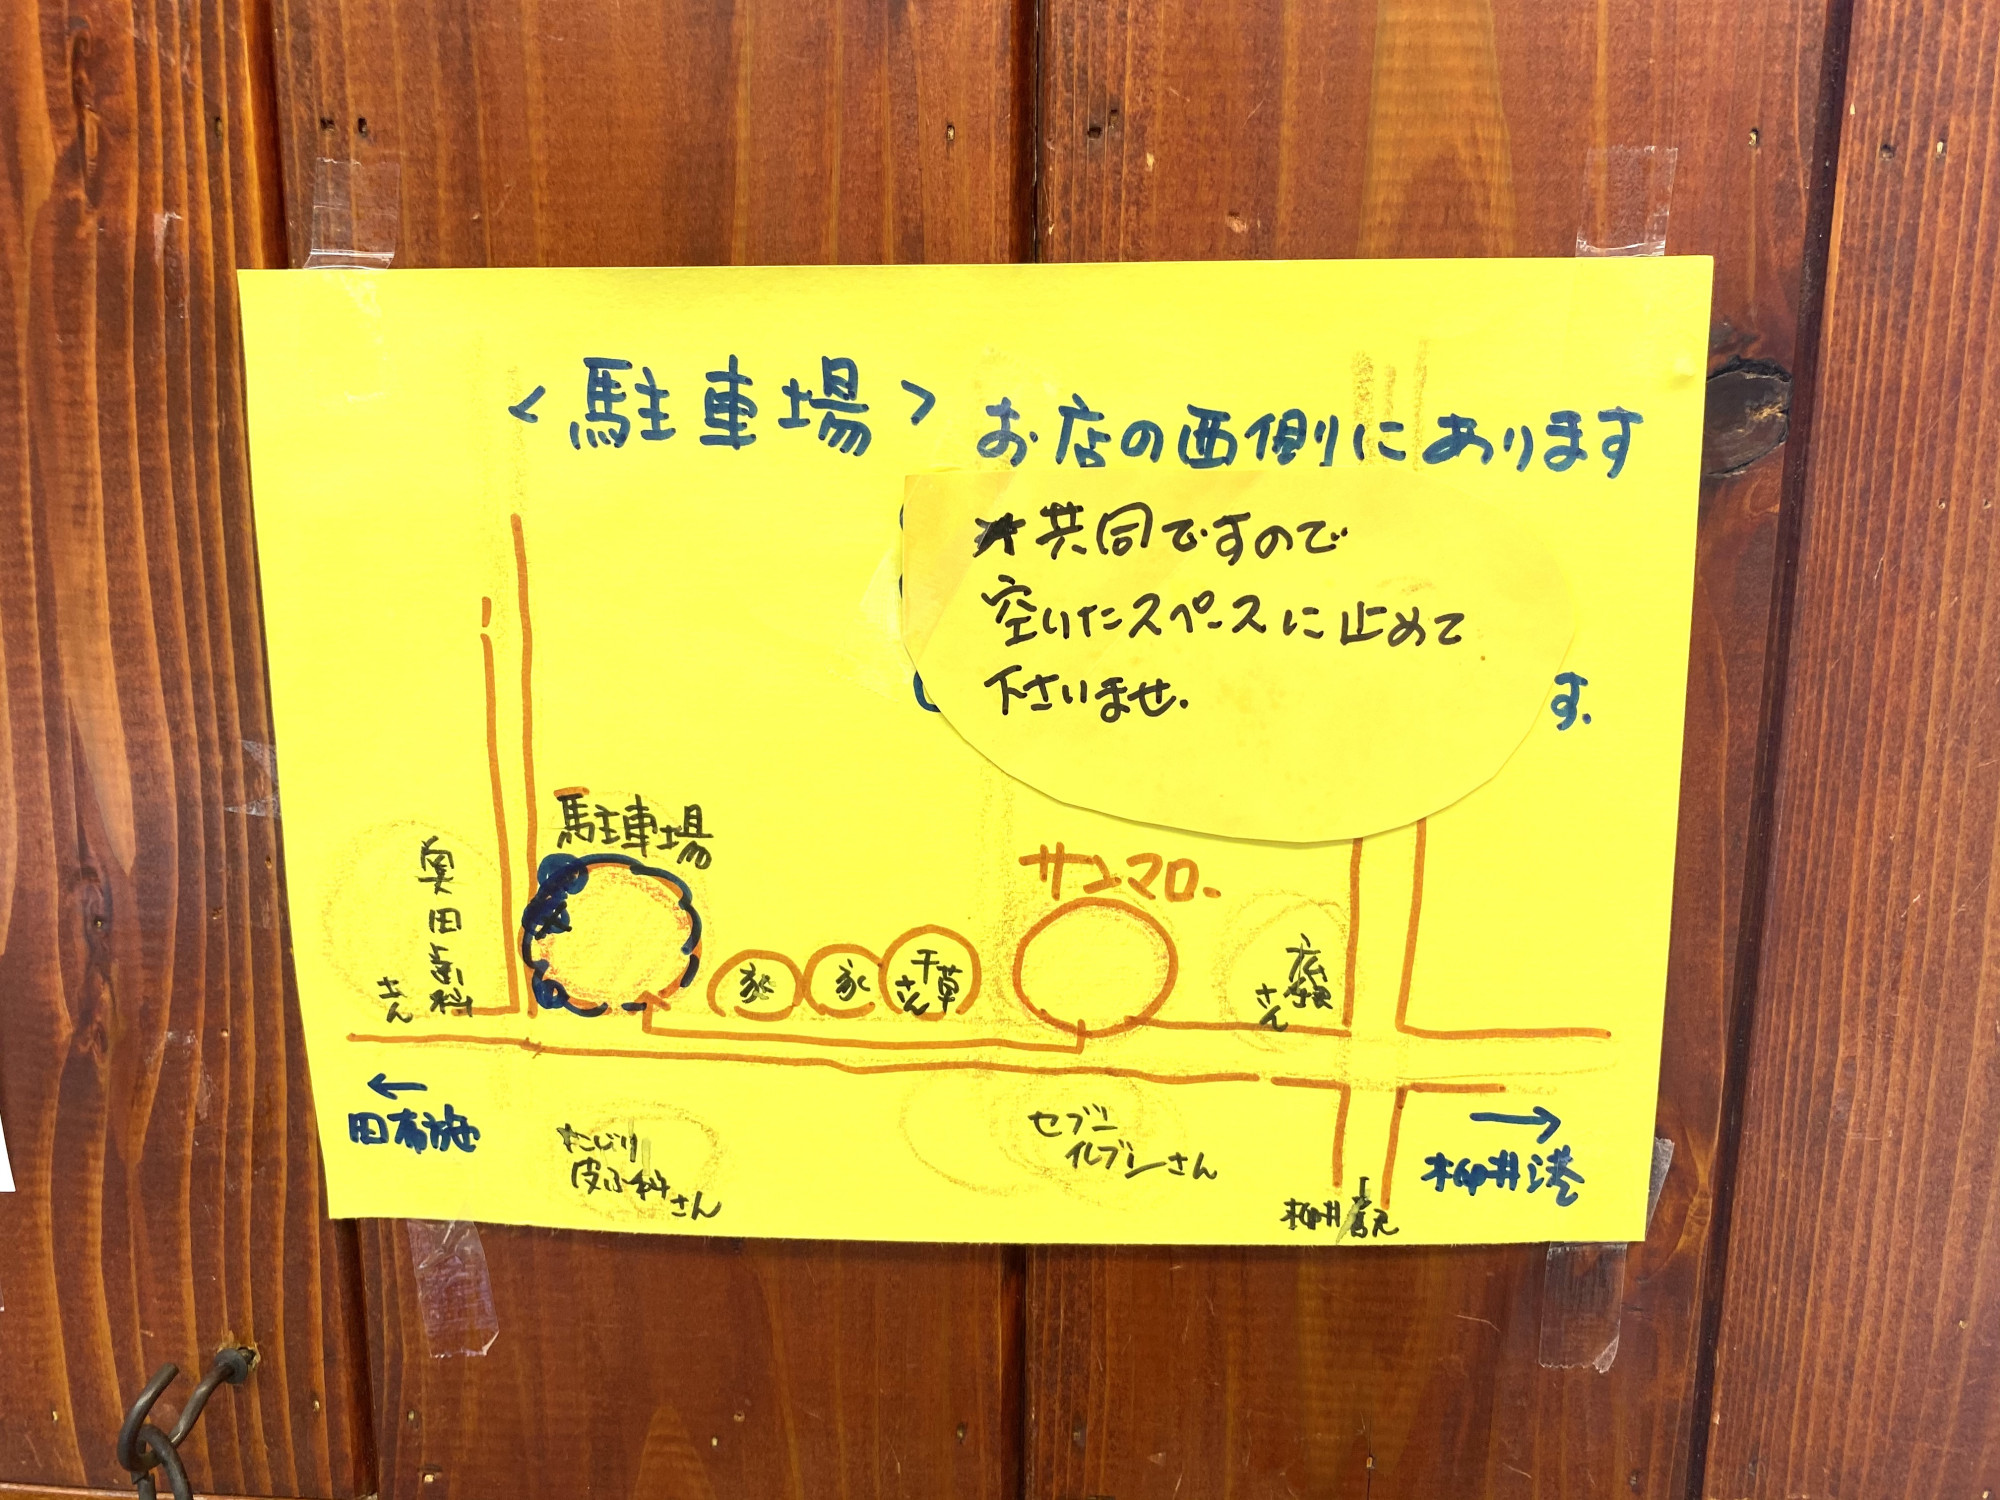 <駐車場> お店の西側にあります
★共同ですので
空いたスペースに止めて
下さいませ.
す.
駐車場
サンマロ.
奥田歯科
さん
家
家
千草
さん
さん
←
田布施
たじり
皮ふ科さん
セブン
イレブンさん
→
柳井港
柳井駅